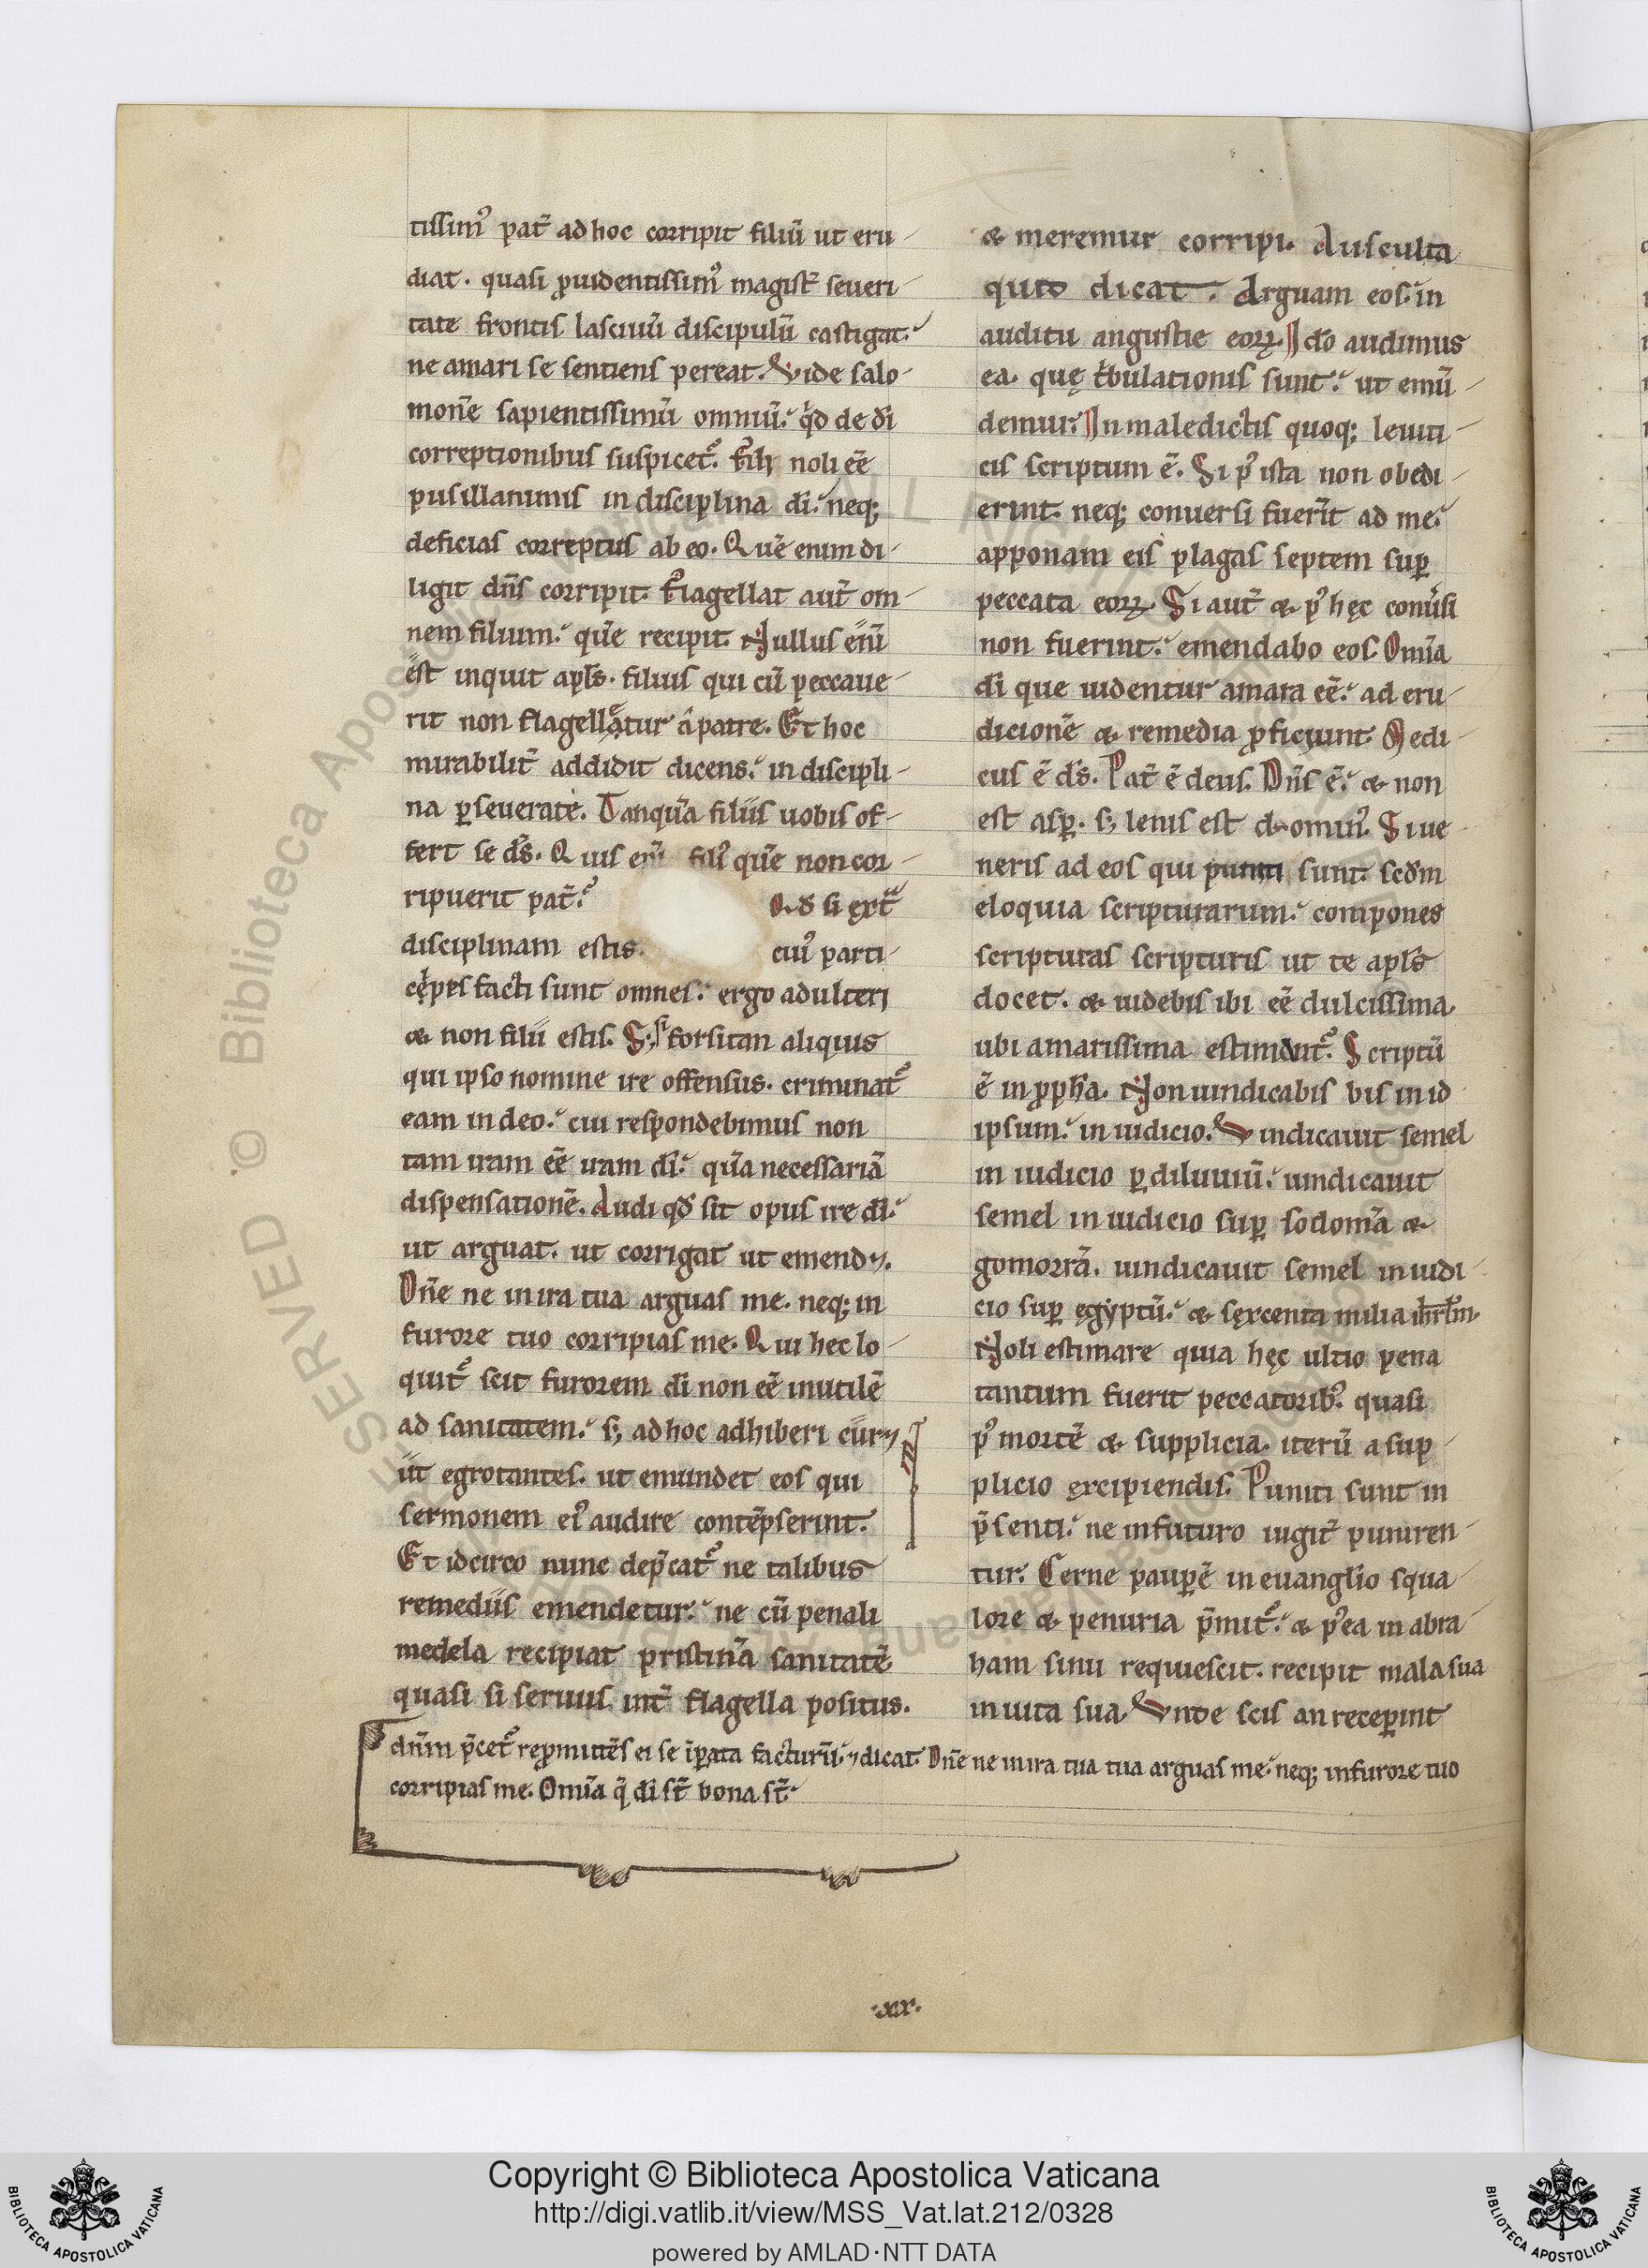 tissim᷒ pat̃ ad hoc corripit filiũ ut eru-
diat. quasi ꝓuidentissim᷒ magist̃ seueri-
tate frontis lasciuũ discipulũ castigat.
ne amari se sentiens pereat. Vide salo-
monẽ sapientissimũ omniũ. qͥd de dĩ
correptionibus suspicet᷒. Fili noli eẽ
pusillanimis in disciplina dĩ. neq;
deficias correptus ab eo. Quẽ enim di-
ligit dñs corripit. Flagellat aut̃ om-
nem filium. quẽ recipit. Nullus enĩ
est inquit apl̃s. filius qui cũ peccaue-
rit non flagellatur a patre. Et hoc
mirabilit̃ addidit dicens. in discipli-
na ꝑseuerate. Tanquã filiis uobis of-
fert se d̃s. Quis enĩ fili᷒ quẽ non cor-
ripuerit pat̃.
Qd̃ si ext͛
disciplinam estis.
cui᷒ parti-
cepes facti sunt omnes. ergo adulteri
& non filii estis. S; forsitan aliquis
qui ipso nomine ire offensus. criminat᷒
eam in deo. cui respondebimus non
tam iram eẽ iram dĩ. quã necessariã
dispensationẽ. Audi qd̃ sit opus ire dĩ.
ut arguat. ut corrigat ut emend&.
Dñe ne in ira tua arguas me. neq; in
furore tuo corripias me. Qui hec lo-
quit᷒ scit furorem dĩ non eẽ inutilẽ
ad sanitatem. s; ad hoc adhiberi
ut egrotantes. ut emundet eos qui
sermonem ei᷒ audire contẽpserint.
Et idcirco nunc dep̃cat᷒ ne talibus
remediis emendetur. ne cũ penali
medela recipiat pristinã sanitatẽ
quasi si seruus int̃ flagella positus.
& meremur corripi. Ausculta
quo dicat. Arguam eos. in
auditu angustie eoꝝ. Id̃o audimus
ea. quę tͥbulationis sunt. ut emũ-
demur. In maledictis quoq; leuiti-
cis scriptum ẽ. Si p᷒ ista non obedi-
erint. neq; conuersi fuerĩt ad me.
apponam eis plagas septem suꝑ
peccata eoꝝ. Si aut̃ & p᷒ hęc conũsi
non fuerint. emendabo eos. Omĩa
dĩ que uidentur amara eẽ. ad eru-
dicionẽ & remedia ꝓficiunt. Medi-
cus ẽ d̃s. Pat̃ ẽ deus. Dñs ẽ. & non
est asꝑ. s; lenis est domin᷒. Si ue-
neris ad eos qui puniti sunt. scd̃m
eloquia scripturarum. compones
scripturas scripturis ut te apl̃s
docet. & uidebis ibi eẽ dulcissima
ubi amarissima estimant᷒. Scriptũ
ẽ in ꝓph̃a. Non uindicabis bis in id
ipsum. in iudicio. Vindicauit semel
in iudicio ꝑ diluuiũ. uindicauit
semel in iudicio suꝑ sodomã &
gomorrã. uindicauit semel in iudi-
cio suꝑ egyptũ. & sexcenta milia ihrl̃m.
Noli estimare quia hęc ultio pena
tantum fuerit peccatorib᷒. quasi
p᷒ mortẽ & supplicia. iterũ a sup-
plicio excipiendis. Puniti sunt in
p̃senti. ne in futuro iugit̃ puniren-
tur. Cerne pauperẽ in euanglio squa-
lore & penuria p̃mit᷒. & p᷒ea in abra-
ham sinu requiescit. recipit mala sua
in uita sua. Vnde scis an receperint
dñm p̃cet᷒ repromittẽs ei se iꝑata facturũ. & dicat. Dñe ne in ira tua tua arguas me. neq; in furore tuo
corripias me. Omĩa q̃ dĩ st̃ bona st̃.
.xx.
Copyright © Biblioteca Apostolica Vaticana
http://digi.vatlib.it/view/MSS_Vat.lat.212/0328
powered by AMLAD·NTT DATA
BIBLIOTECA APOSTOLICA VATICANA
BIBLIOTECA APOSTOLICA VATICANA